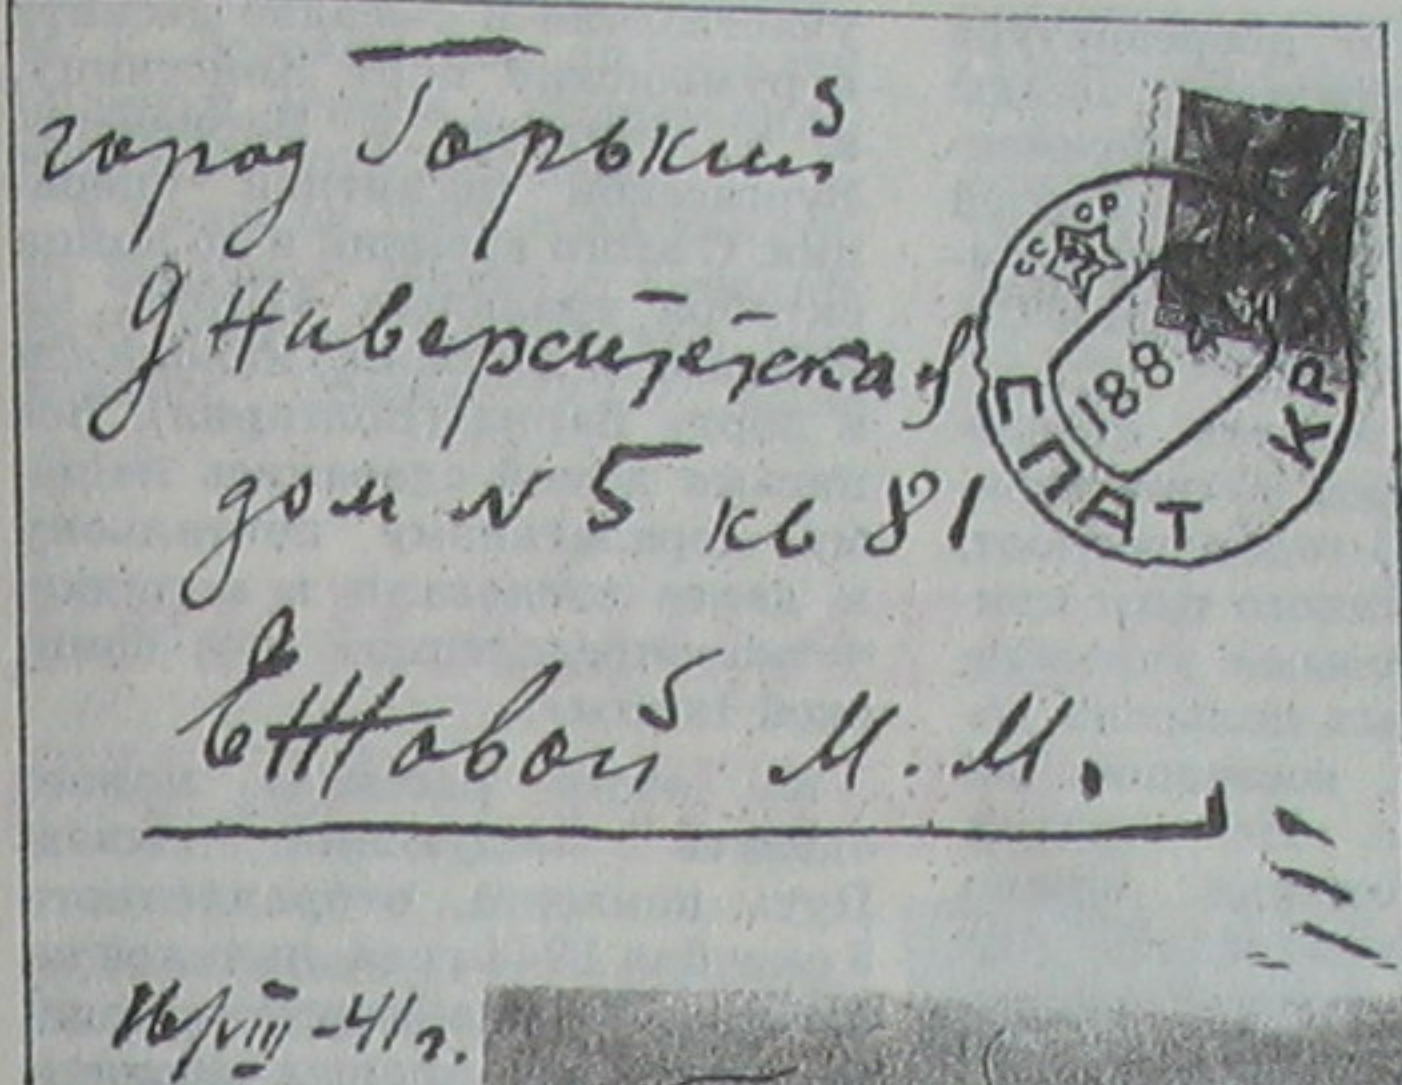 город Горький
Университетская
дом № 5 кв 81
Ежовой М. М.
СССР
188
ЕПАТ КР
16/VIII-41 г.